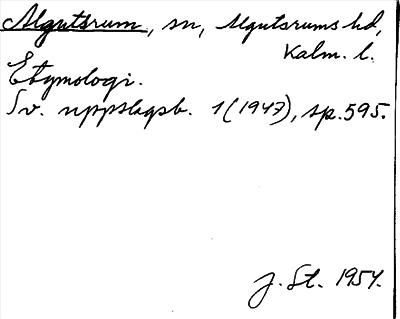 Algutsrum, sn, Algutsrums hd,
Kalm. l.
Etymologi.
Sv. uppslagsb. 1 (1947), sp. 595.
J. St. 1954.